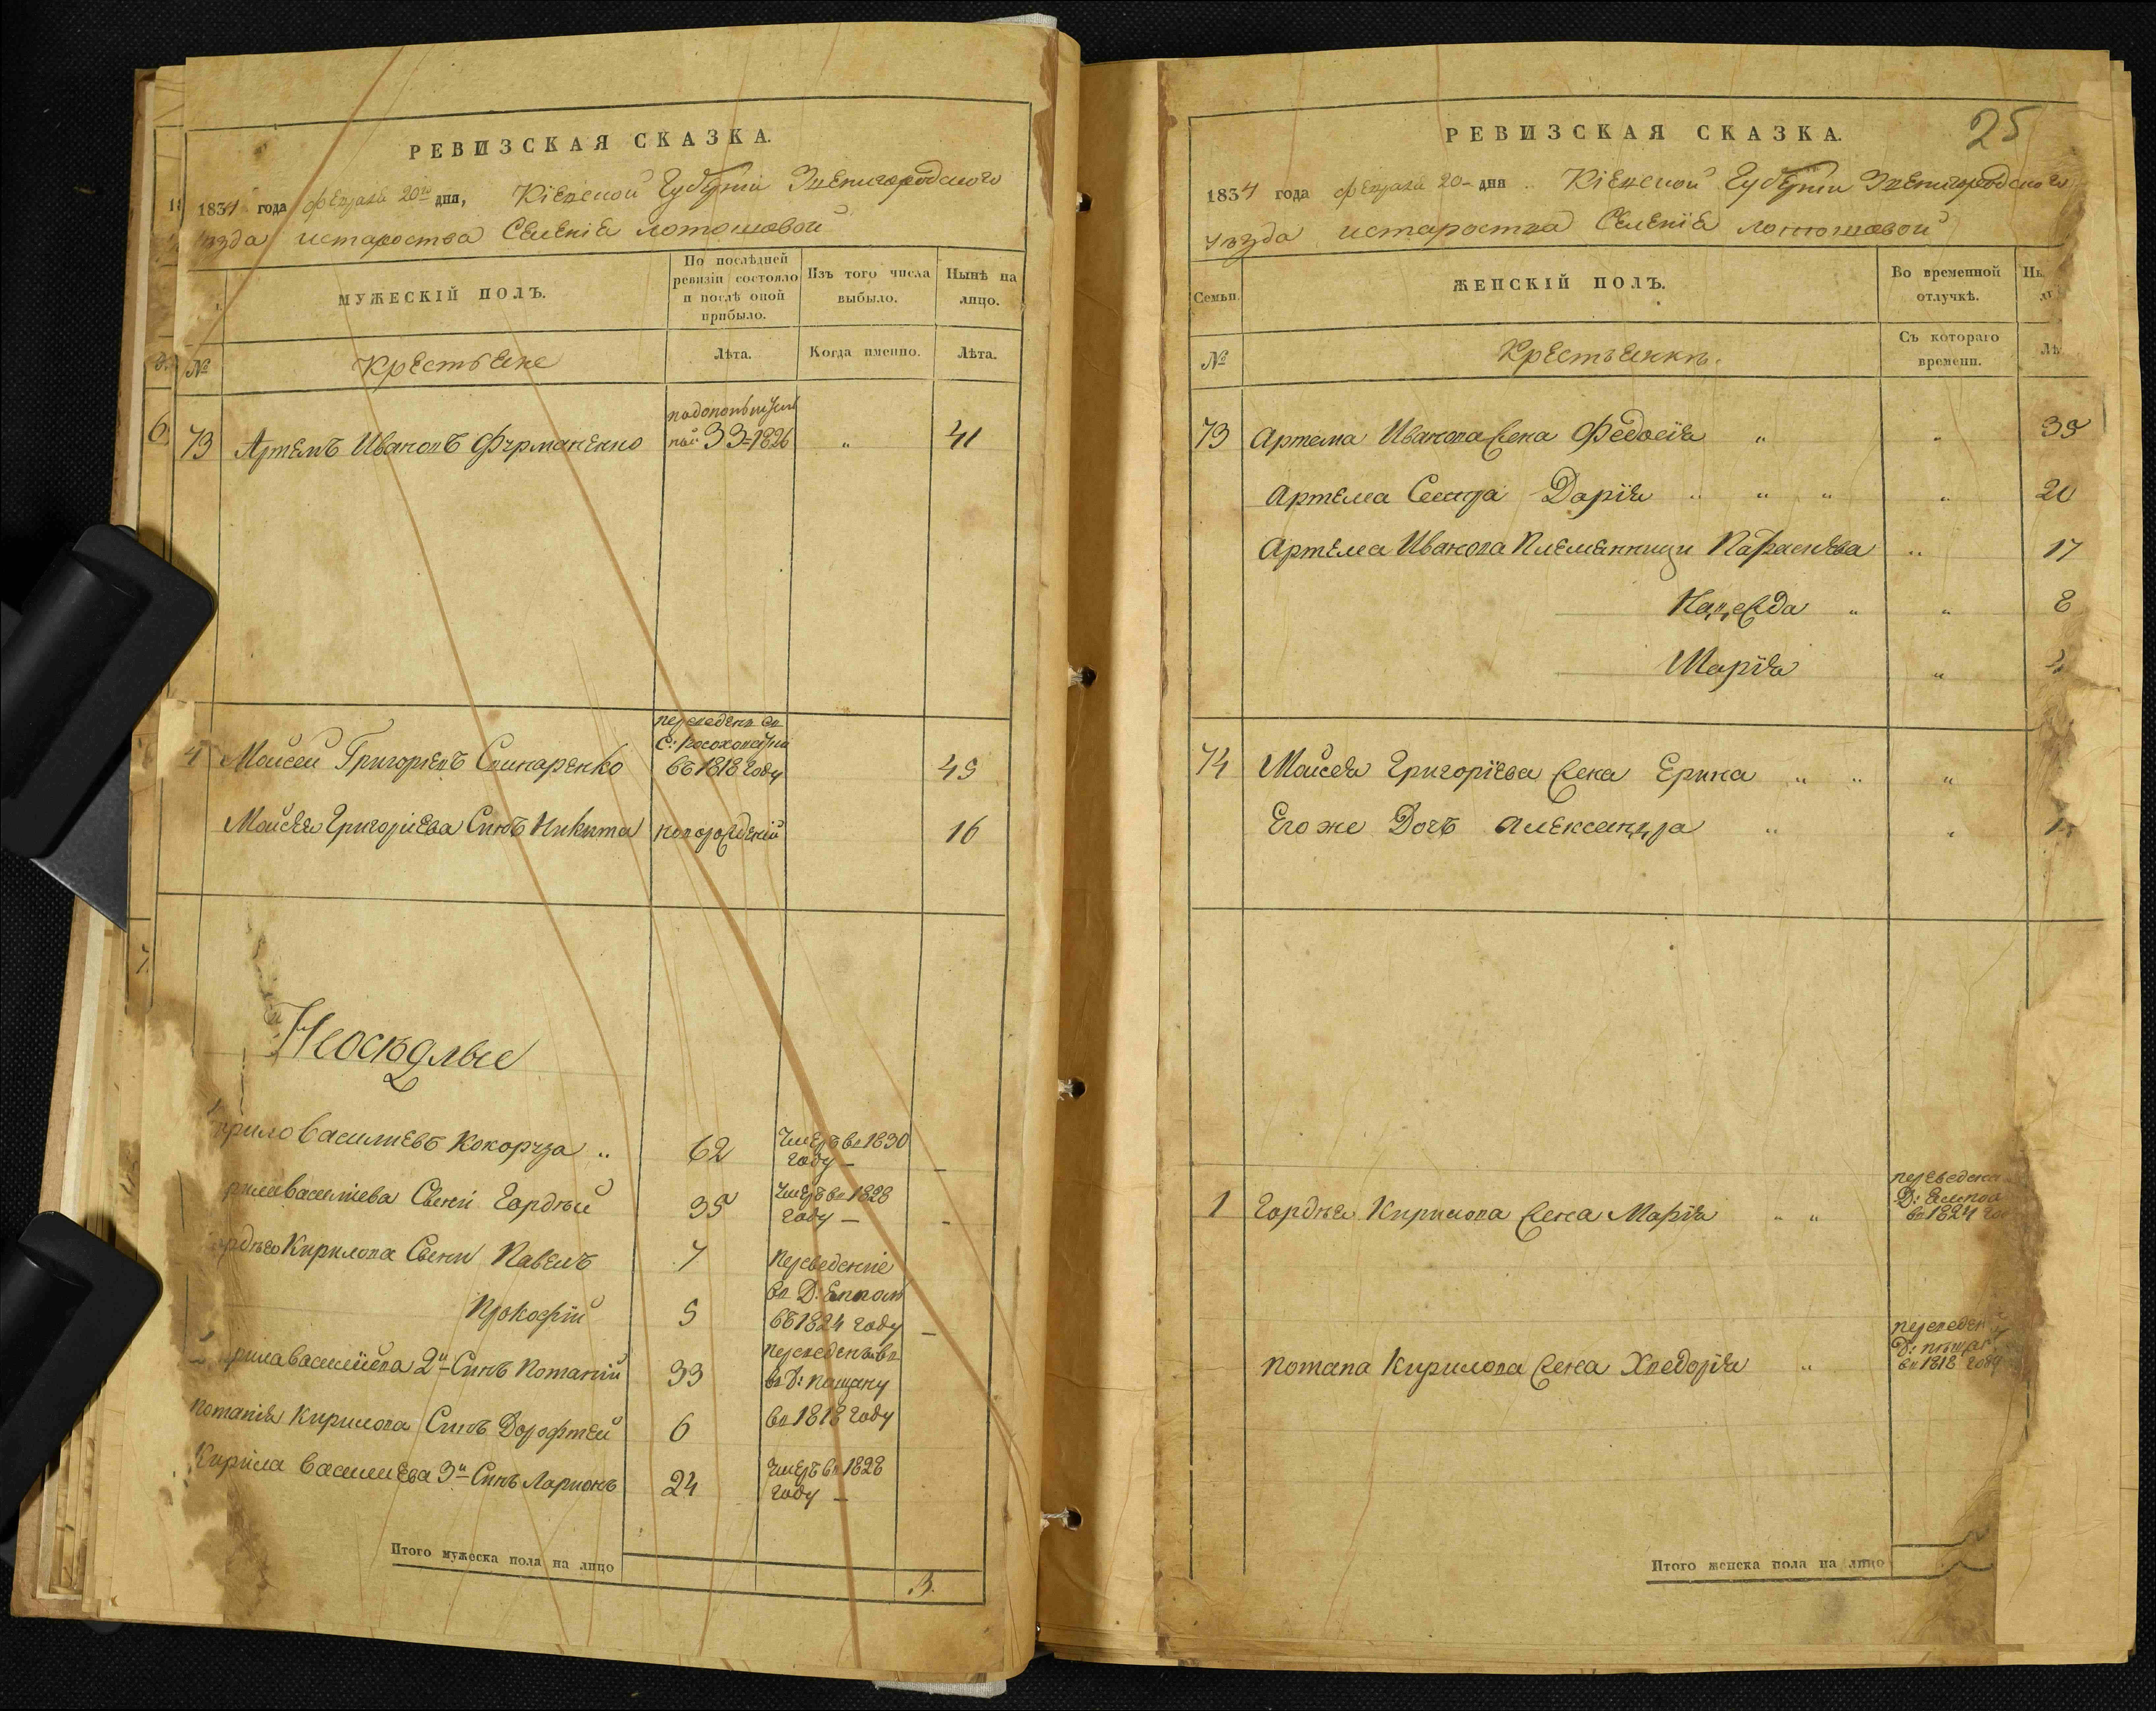 РЕВИЗСКАЯ СКАЗКА.
1834 года февраля 20го дня, Кіевской Губерніи Звенигородского
уѣзда истароства Селенія Лотошовой
МУЖЕСКІЙ ПОЛЪ.
По послѣдней ревизіи состояло и послѣ оной прибыло.
Изъ того числа выбыло.
Нынѣ на лицо.
№
Крестьяне
Лѣта.
Когда именно.
Лѣта.
73 Артемъ Ивановъ Фурманенко 33 = 1826 „ 41
Мойсей Григоріевъ переведенъ въ С: въ 1818 году 49
Мойсея Григоріева Синъ Никита новорожденій 16
Неосѣдлые
Василиевъ Кокоруза „ 62 Умеръ въ 1830 году —
Василіева Сыни Гордѣй 35 Умеръ въ 1828 году —
Кирилова Сыни Павелъ 7 Переведеніе
въ Д.
Прокофій 5 въ 1824 году —
2й Синъ Потапій 33 переведенъ въ
въ Д:
Потапія Кирилова Синъ Дорофтей 6 въ 1818 году
Кирила Василиева 3й Синъ Ларионъ 24 Умеръ въ 1828 году —
Итого мужеска пола на лицо
3.
25
РЕВИЗСКАЯ СКАЗКА.
1834 года февраля 20 - дня Кіевской Губерніи Звенигородского
уѣзда истароства Селенія Лотошовой
Семьи.
ЖЕНСКІЙ ПОЛЪ.
Во временной отлучкѣ.
№
Крестьянкъ.
Съ котораго времени.
73 Артема Иванова Жена Федосія „ „ 39
Артема Сестра Дарія „ „ „ „ 20
Артема Иванова Племенници Параскева „ 17
Надежда „ „ 8
Марія „
74 Мойсея Григоріева Жена Ерина „ „ „
Его же Дочъ Александра „ „
1 Гордѣя Кирилова Жена Марія „ „ переведена
Д:
въ 1824
Потапа Кирилова Жена Хведорія „
Д:
въ 1818 году
Итого женска пола на лицо